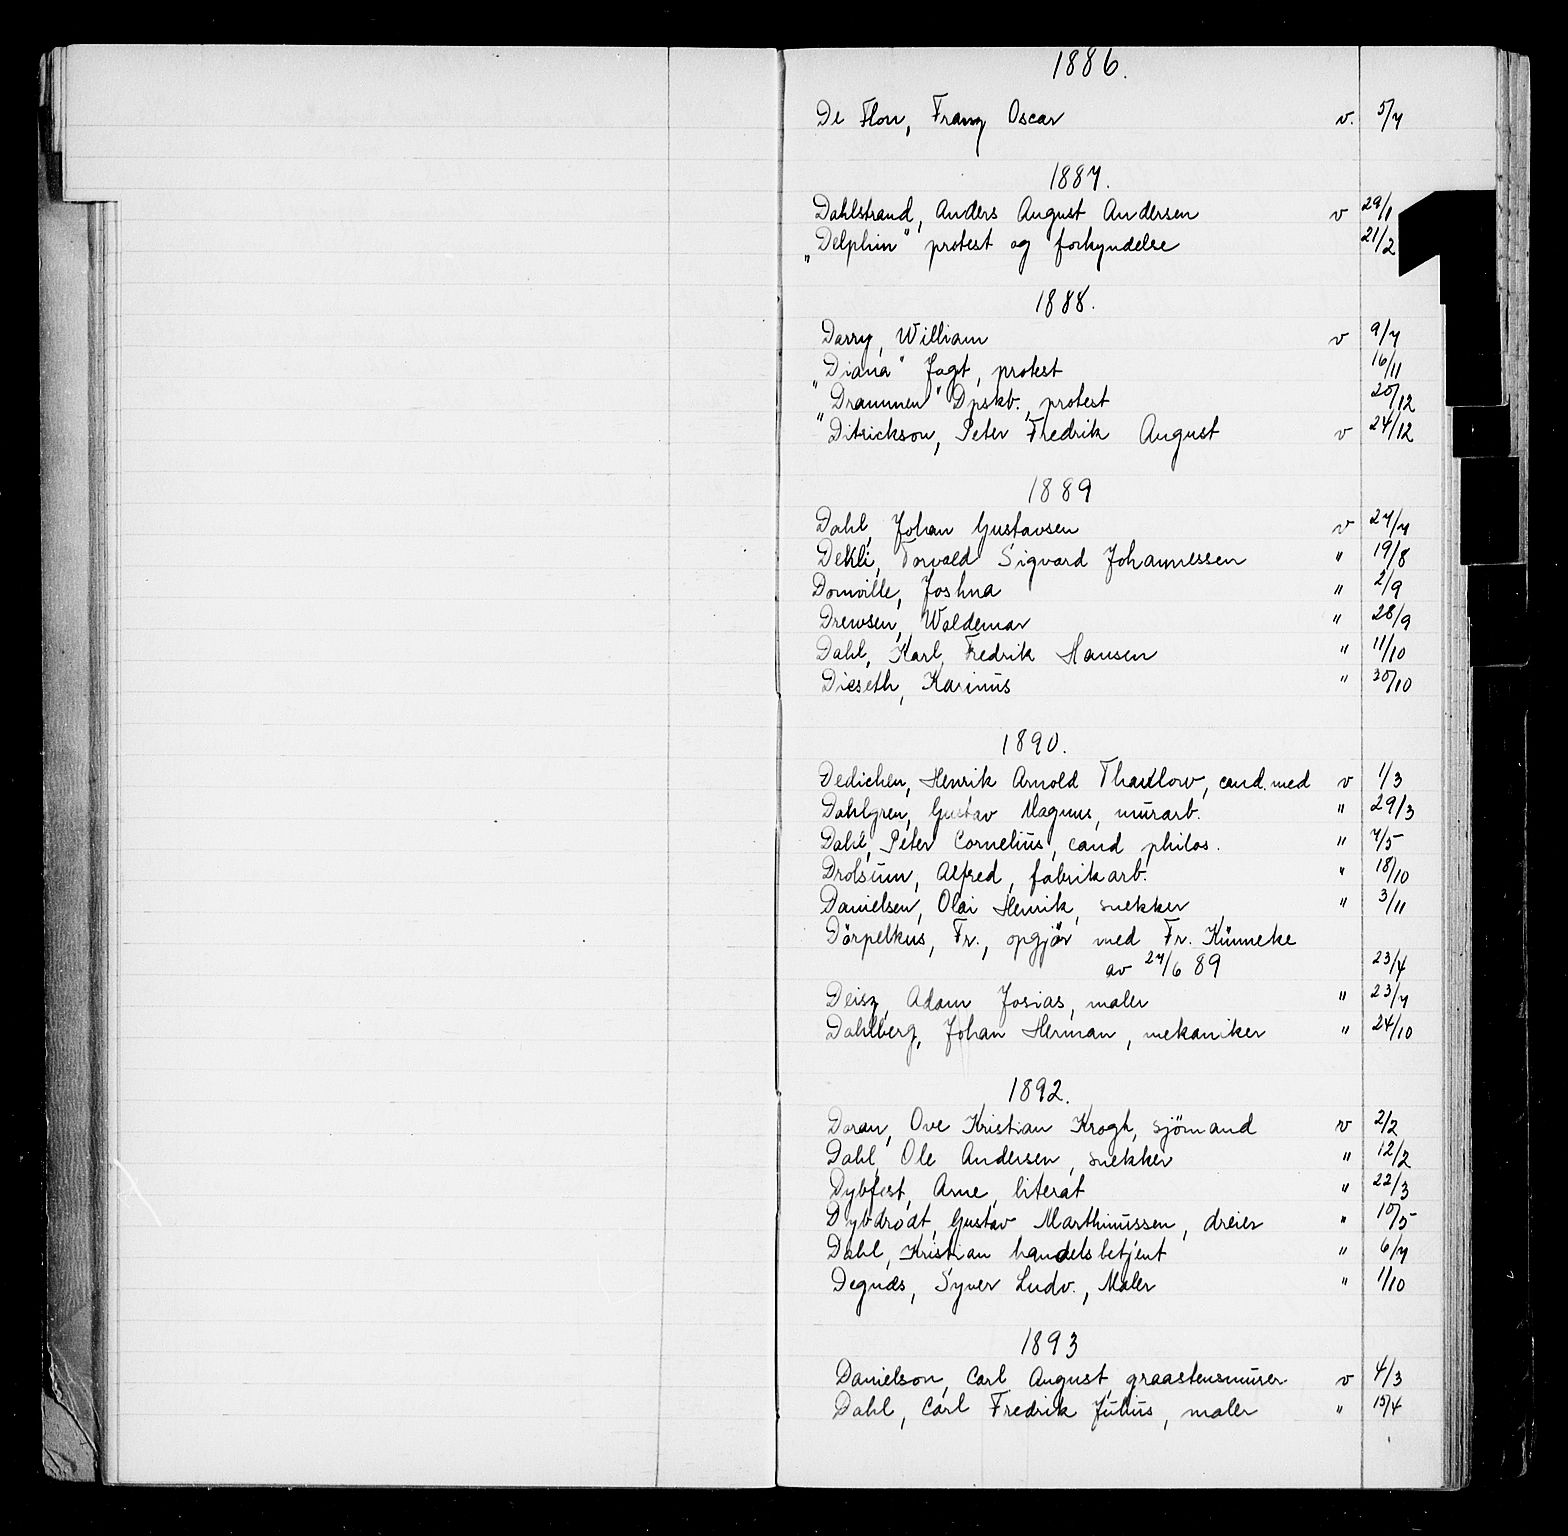 1886.
De Flon, Franz Oscar v. 5/7
1887.
Dahlstrand, Anders August Andersen v 29/1
"Delphin" protest og forkyndelse 21/2
1888.
Darry, William v 9/7
"Diana" Jagt, protest 16/11
"Drammen" Dpskb., protest 20/12
Ditrickson, Peter Fredrik August v 24/12
1889
Dahl, Johan Gustavsen v 27/7
Dekli, Torvald Sigvard Johannessen " 19/8
Domville, Joshua " 2/9
Drewsen, Waldemar " 28/9
Dahl, Karl Fredrik Hansen " 11/10
Dieseth, Karinus " 30/10
1890.
Dedichen, Henrik Arnold Thaulow, cand. med v 1/3
Dahlgren, Gustav Magnus, murarb. " 29/3
Dahl, Peter Cornelius, cand philos. " 7/5
Drolsum, Alfred, fabrikarb. " 18/10
Danielsen, Olai Henrik, snekker " 3/11
Dörpelkus, Fr., opgjör med Fr. Künneke
av 27/6 89 23/4
Deisz, Adam Josias, maler " 23/7
Dahlberg, Johan Herman, mekaniker " 24/10
1892.
Doran, Ove Kristian Krogh, sjömand v 2/2
Dahl, Ole Andersen, snekker " 12/2
Dybfest, Arne, literat " 22/3
Dybdrodt, Gustav Marthinussen, dreier " 10/5
Dahl, Kristian handelsbetjent " 6/7
Degnæs, Syver Ludv., Maler " 1/10
1893
Danielson, Carl August, graastensmurer v 4/3
Dahl, Carl Fredrik Julius, maler " 15/4